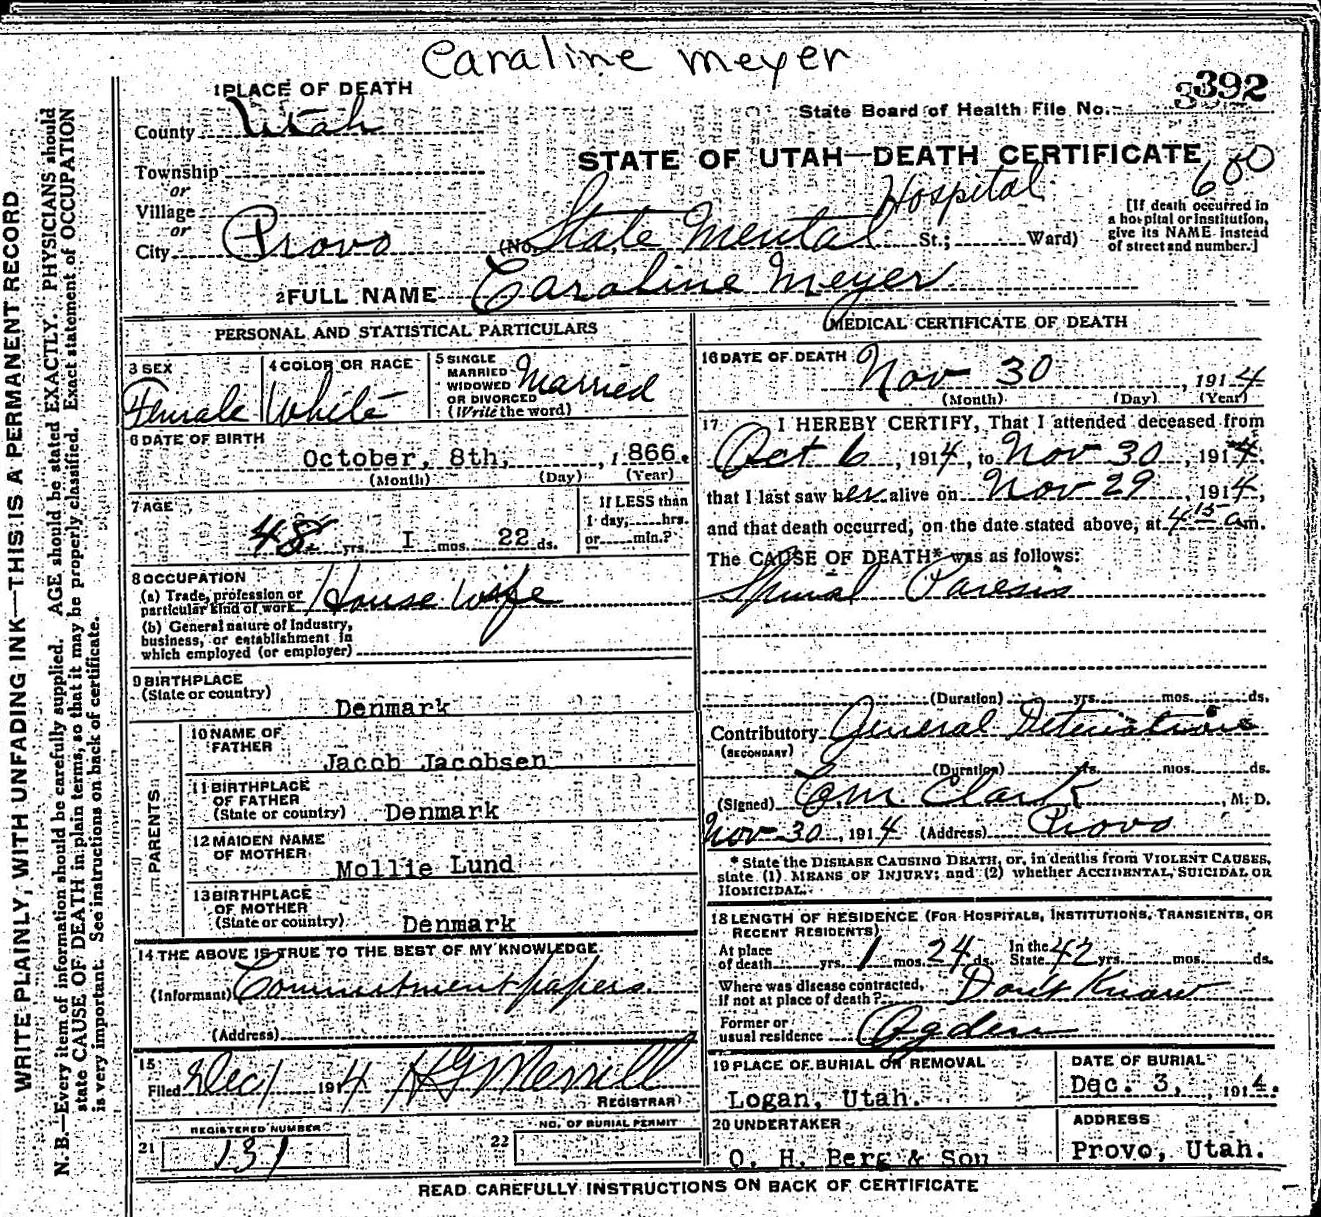 Caraline Meyer
1 PLACE OF DEATH
3392
State Board of Health File No.
County Utah
STATE OF UTAH—DEATH CERTIFICATE
600
Township
or
Village
or
City Provo (No. State Mental Hospital St.; Ward)
[If death occurred in a hospital or institution, give its NAME instead of street and number.]
2 FULL NAME Caraline Meyer
PERSONAL AND STATISTICAL PARTICULARS
3 SEX Female
4 COLOR OR RACE White
5 SINGLE
MARRIED
WIDOWED
OR DIVORCED
(Write the word) Married
6 DATE OF BIRTH
October, 8th, , 1866.
(Month) (Day) (Year)
7 AGE
48 yrs. 1 mos. 22 ds.
If LESS than
1 day, hrs.
or min.?
8 OCCUPATION
(a) Trade, profession or
particular kind of work House Wife
(b) General nature of Industry,
business, or establishment in
which employed (or employer)
9 BIRTHPLACE
(State or country)
Denmark
PARENTS
10 NAME OF
FATHER
Jacob Jacobsen
11 BIRTHPLACE
OF FATHER
(State or country) Denmark
12 MAIDEN NAME
OF MOTHER
Mollie Lund
13 BIRTHPLACE
OF MOTHER
(State or country) Denmark
14 THE ABOVE IS TRUE TO THE BEST OF MY KNOWLEDGE
(Informant) Commitment papers
(Address)
15
Filed Dec 1 1914 HG Merrill
REGISTRAR
REGISTERED NUMBER
21 131
22 NO. OF BURIAL PERMIT
MEDICAL CERTIFICATE OF DEATH
16 DATE OF DEATH Nov 30 , 1914
(Month) (Day) (Year)
17 I HEREBY CERTIFY, That I attended deceased from
Oct 6, 1914, to Nov 30, 1914,
that I last saw her alive on Nov 29, 1914,
and that death occurred, on the date stated above, at 4 15 a m.
The CAUSE OF DEATH* was as follows:
Spinal Paresis
(Duration) yrs. mos. ds.
Contributory General Deterioration
(SECONDARY)
(Duration) yrs. mos. ds.
(Signed) C M Clark, M. D.
Nov 30, 1914 (Address) Provo
* State the DISEASE CAUSING DEATH, or, in deaths from VIOLENT CAUSES,
state (1) MEANS OF INJURY; and (2) whether ACCIDENTAL, SUICIDAL OR
HOMICIDAL.
18 LENGTH OF RESIDENCE (FOR HOSPITALS, INSTITUTIONS, TRANSIENTS, OR
RECENT RESIDENTS)
At place In the
of death yrs. 1 mos. 24 ds. State 42 yrs. mos. ds.
Where was disease contracted,
if not at place of death? Don't Know
Former or
usual residence Ogden
19 PLACE OF BURIAL OR REMOVAL
Logan, Utah.
DATE OF BURIAL
Dec. 3, , 1914.
20 UNDERTAKER
O. H. Berg & Son
ADDRESS
Provo, Utah.
READ CAREFULLY INSTRUCTIONS ON BACK OF CERTIFICATE
WRITE PLAINLY, WITH UNFADING INK—THIS IS A PERMANENT RECORD
N. B.—Every item of information should be carefully supplied. AGE should be stated EXACTLY. PHYSICIANS should
state CAUSE OF DEATH in plain terms, so that it may be properly classified. Exact statement of OCCUPATION
is very important. See instructions on back of certificate.